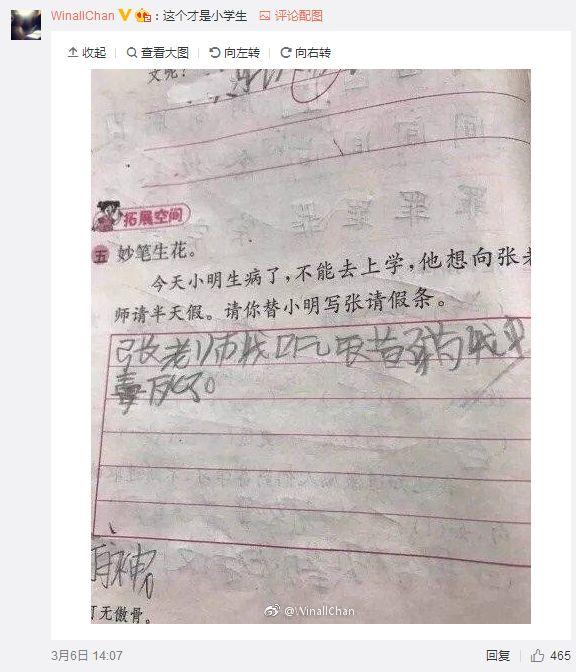 WinallChan：这个才是小学生 评论配图
收起 查看大图 向左转 向右转
文呢？
拓展空间
五 妙笔生花。
今天小明生病了，不能去上学，他想向张老
师请半天假。请你替小明写张请假条。
张老师我
毒死了。
有神
无傲骨。
@WinallChan
3月6日 14:07 回复 465